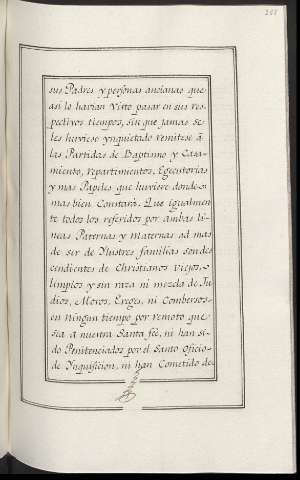 sus Padres y personas ancianas que
asi lo havian visto pasar en sus res-
pectivos tiempos, sin que jamas se
les huviese ynquietado remitese à
las Partidas de Baptismo y Casa-
miento, repartimientos, Egecutorias
y mas Papeles que huviere donde
mas bien Constarà. Que igualmen
te todos los referidos por ambas li-
neas Paternas y Maternas ad mas
de ser de Ylustres familias son des
cendientes de Christianos Viejos,
limpios y sin raza ni mezcla de Ju
dios, Moros, Ereges, ni Combersos
en ningun tiempo por remoto que
sea a nuestra Santa feé, ni han si-
do Penitenciados por el Santo Oficio
de Ynquisicion, ni han Cometido de